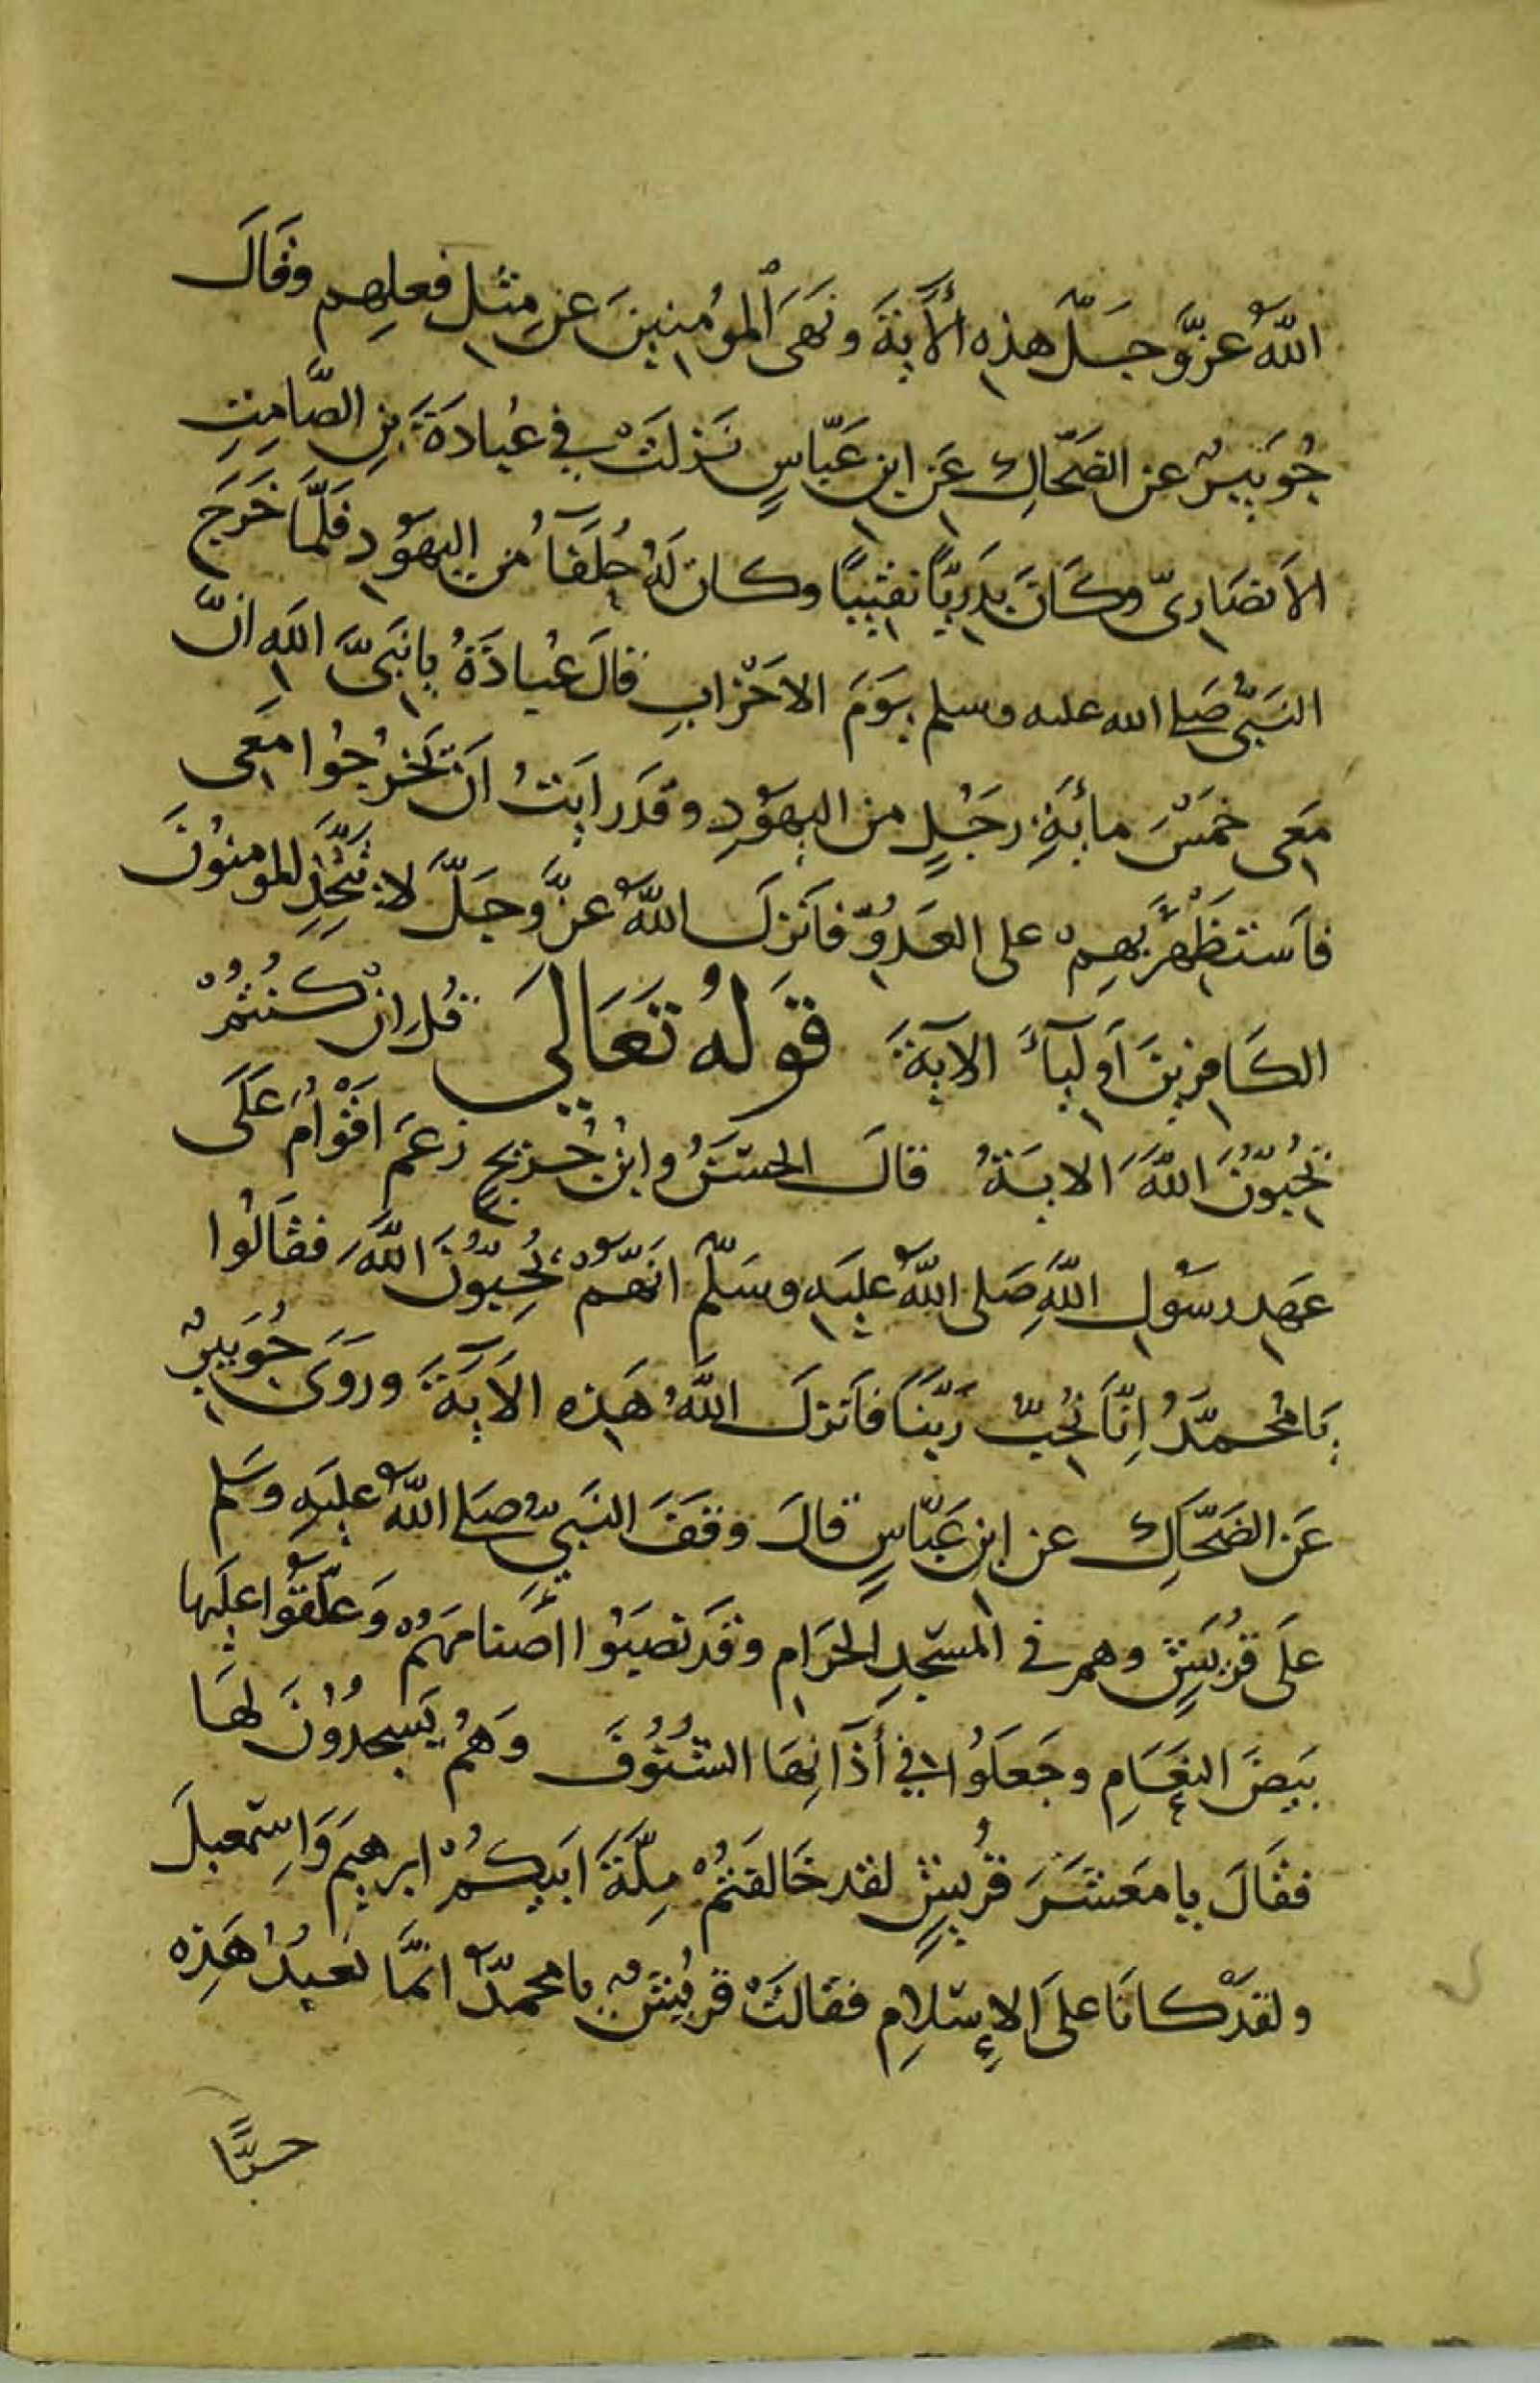 اللهُ عزَّ وجَلَّ هذه الآيةَ ونَهَى المؤمنينَ عن مِثل فعلِهِم وقَالَ
جُوَيبِرٌ عن الضَحّاكِ عَن ابنِ عَبّاسٍ نَزلَتْ في عُبادَةَ بنِ الصَّامِتِ
الأنصَاريّ وكَانَ بَدرِيًّا نقيبًا وكان لَهُ حُلَفَآءُ من اليهُودِ فلَمَّا خَرَجَ
النَبيُّ صَلى الله عليه وسلم يَومَ الاحْزابِ قالَ عُبادَةُ يا نَبيَّ اللهِ انَّ
مَعى خمسْ مائةِ رجُلٍ من اليهُودِ وقَد رايتُ انَ يَخرُجُوا مَعى
فاَستَظْهِرَ بِهِمْ على العَدُوّ فاَنزلَ اللهُ عزَّ وجَلَّ لا يَتَّخِذِ المومنُونَ
الكَافِرينَ اَوليآءَ الآيةَ قَولهُ تَعَالىَ قُل اِنْ كُنتُمْ
تُحِبّوُنَ اللهَ الايَةُ قالَ الحسَنُ وابنُ جُريجٍ زعَم اقْوامٌ عَلَى
عَهدِ رسُولِ اللهِ صَلى اللهُ عليَهِ وسَلّم انَهُمْ يُحِبّوُنَ اللهَ فقَالُوا
يَا محُمَّدُ اِنّا نُحِبّ رَبَّنَا فاَنزلَ اللهُ هَذِه الآيَةَ ورَوَى جُوَيبِرٌ
عَن الضَحّاكِ عن ابنِ عَبّاسٍ قالَ وقفَ النَبيّ صَلى اللهُ عليَهِ وسَلم
علَى قرُيشٍ وهم في المسَجدِ الحرَامِ وقَد نصَبوُا اصَنامَهُمْ وَعلّقوُا عليَها
بَيضَ النعَامِ وجَعَلوُا في أذَانِهَا الشُنوُفَ وَهُم يَسجدُوُنَ لهَا
فقَالَ يا مَعشَرَ قرُيشٍ لقد خَالفتُمْ مِلّةَ ابَيِكُمْ ابرهيمَ وَاِسمَعيلَ
ولقدَ كانَا علىَ الإسَلامِ فقالتْ قريُشٌ يا محمدُّ انمَّا نَعبدُ هَذِه
حبًّا